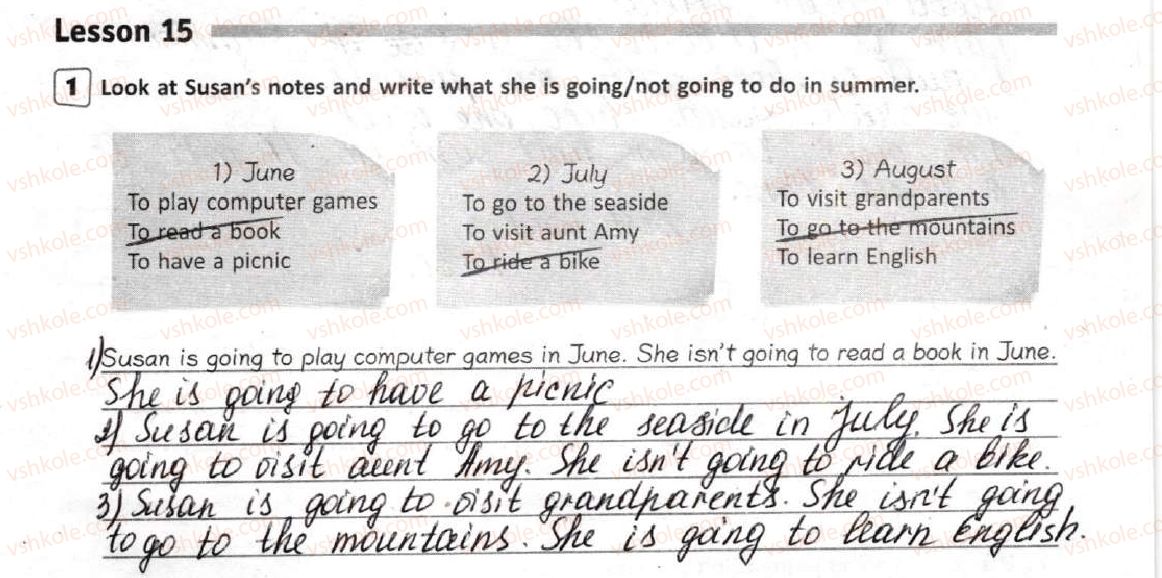 Lesson 15
1 Look at Susan's notes and write what she is going/not going to do in summer.
1) June
To play computer games
To read a book
To have a picnic
2) July
To go to the seaside
To visit aunt Amy
To ride a bike
3) August
To visit grandparents
To go to the mountains
To learn English
1) Susan is going to play computer games in June. She isn't going to read a book in June.
She is going to have a picnic
2) Susan is going to go to the seaside in July. She is
going to visit aunt Amy. She isn't going to ride a bike.
3) Susan is going to visit grandparents. She isn't going
to go to the mountains. She is going to learn English.
vshkole.com